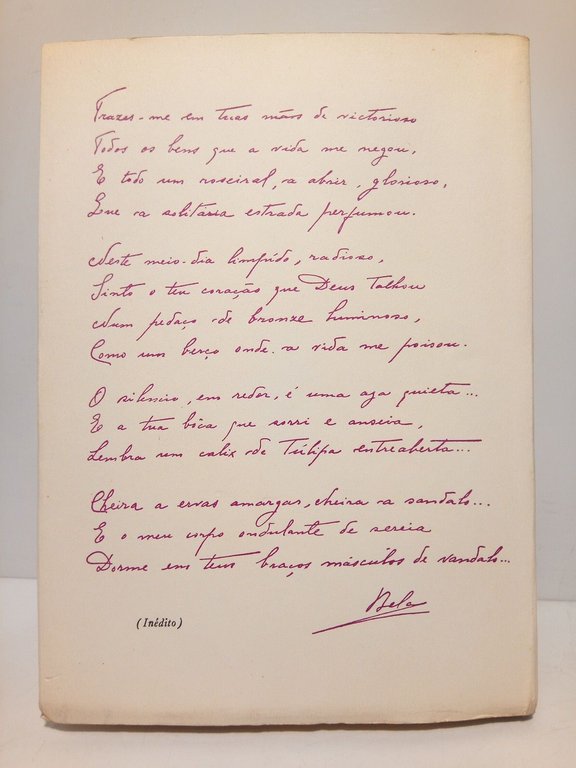 Trazes-me em tuas mãos de victorioso
Todos os bens que a vida me negou,
E todo um roseiral, a abrir, glorioso,
Que a solitária estrada perfumou.
Neste meio-dia limpido, radioso,
Sinto o teu coração que Deus talhou
Num pedaço de bronze luminoso,
Como um berço onde a vida me poisou.
O silencio, em redor, é uma aza quieta...
E a tua bôca que sorri e anseia,
Lembra um calix de túlipa entreaberta...
Cheira a ervas amargas, cheira a sandalo...
E o meu corpo ondulante de sereia
Dorme em teus braços másculos de vandalo...
Bela
(Inédito)